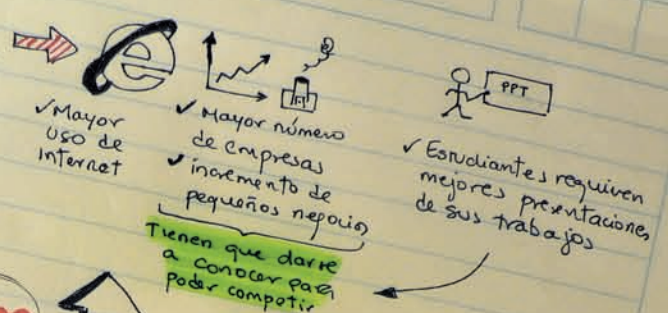 ✓ Mayor
uso de
internet
✓ Mayor número
de empresas
✓ incremento de
pequeños negocios
Tienen que darse
a conocer para
poder competir
PPT
✓ Estudiantes requiren
mejores presentaciones
de sus trabajos